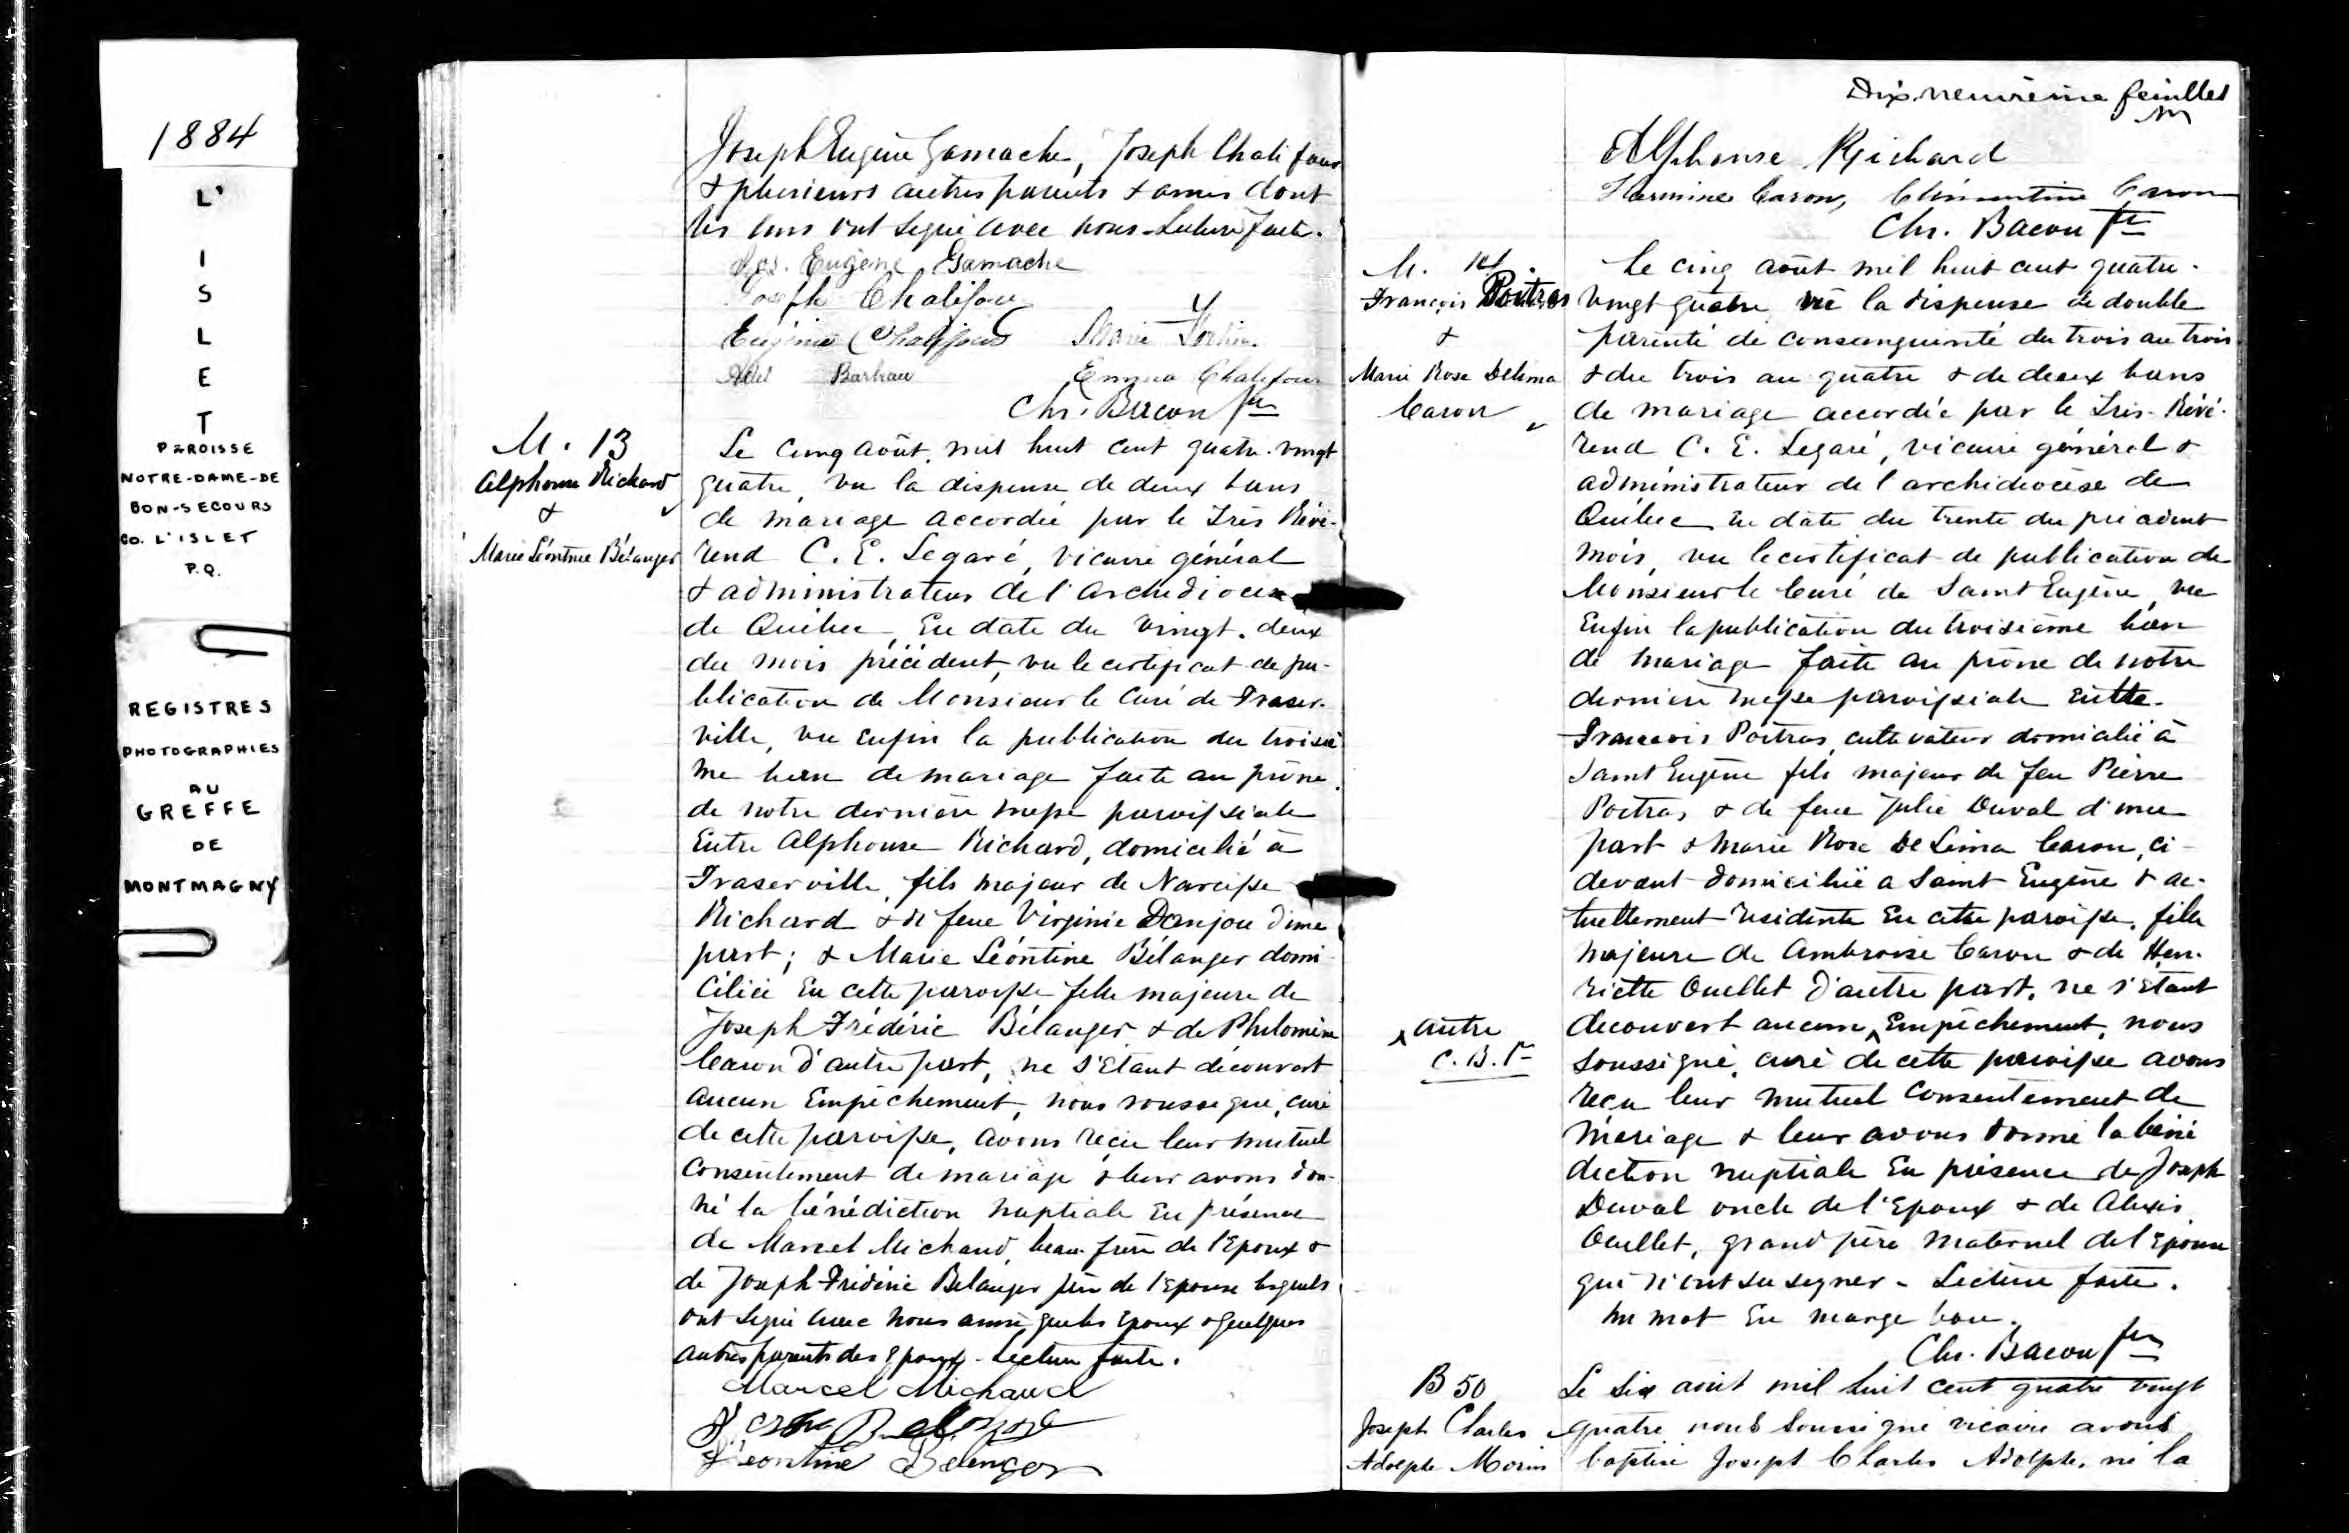 1884
L'
I
S
L
E
T
PAROISSE
NOTRE-DAME-DE
BON-SECOURS
CO. L'ISLET
P.Q.
REGISTRES
PHOTOGRAPHIES
AU
GREFFE
DE
MONTMAGNY
Joseph Eugène Gamache, Joseph Chalifour
& plusieurs autres parents & amis dont
les uns ont signé avec nous. Lecture faite.
Jos. Eugène Gamache
Joseph Chalifour
Eugénie Chalifour Marie Fortin
Barbeau Emma Chalifour
Chs. Bacon Ptre
M. 13
Alphonse Richard
&
Marie Léontine Bélanger
Le cinq août, mil huit cent quatre-vingt
quatre, vu la dispense de deux bans
de mariage accordée par le Très Révé-
rend C. E. Legaré, vicaire général
& administrateur de l'archidiocèse
de Québec, en date du vingt-deux
du mois précédent, vu le certificat de pu-
blication de Monsieur le Curé de Fraser-
ville, vu enfin la publication du troisiè
me ban de mariage faite au prône
de notre dernière messe paroissiale
Entre Alphonse Richard, domicilié à
Fraserville, fils majeur de Narcisse
Richard & de feue Virginie Danjou d'une
part; & Marie Léontine Bélanger domi-
ciliée en cette paroisse fille majeure de
Joseph Frédéric Bélanger & de Philomène
Caron d'autre part, ne s'étant découvert
aucun Empêchement, nous soussigné, curé
de cette paroisse, avons reçu leur mutuel
consentement de mariage & leur avons don-
né la bénédiction nuptiale en présence
de Marcel Michaud, beau-frère de l'Epoux &
de Joseph Frédéric Belanger père de l'épouse lesquels
ont signé avec nous ainsi que les Epoux & quelques
autres parents des Epoux. Lecture faite.
Marcel Michaud
Léontine Bélanger
Dix-neuvième feuillet
Alphonse Richard
Hermine Caron, Clémentine Caron
Chs. Bacon Ptre
M. 14
François Poitras
&
Marie Rose Delima
Caron
Le cinq août mil huit cent quatre-
vingt quatre, vû la dispense de double
parenté de consanguinité du trois au trois
& du trois au quatre & de deux bans
de mariage accordée par le Très-Révé-
rend C. E. Legaré, vicaire général &
administrateur de l'archidiocèse de
Québec en date du trente du précédent
mois, vu le certificat de publication de
Monsieur le Curé de Saint Eugène, vu
Enfin la publication du troisième ban
de mariage faite au prône de notre
dernière messe paroissiale entre
François Poitras, cultivateur domicilié à
Saint Eugène fils majeur de feu Pierre
Poitras & de feue Julie Duval d'une
part & Marie Rose DeLima Caron, ci-
devant domiciliée à Saint Eugène & ac-
tuellement résidente en cette paroisse, fille
majeure de Ambroise Caron & de Hen-
riette Ouellet d'autre part, ne s'étant
découvert aucun ^ Empêchement, nous
^ autre
C. B. Ptre
soussigné, curé de cette paroisse avons
reçu leur mutuel consentement de
mariage & leur avons donné la béné
diction nuptiale en présence de Joseph
Duval oncle de l'Epoux & de Alexis
Ouellet, grand père maternel de l'Epouse
qui n'ont su signer - Lecture faite.
un mot en marge bon.
Chs. Bacon Ptre
B 50
Joseph Charles
Adolphe Morin
Le six août mil huit cent quatre vingt
quatre nous soussigné vicaire avons
baptisé Joseph Charles Adolphe, né la